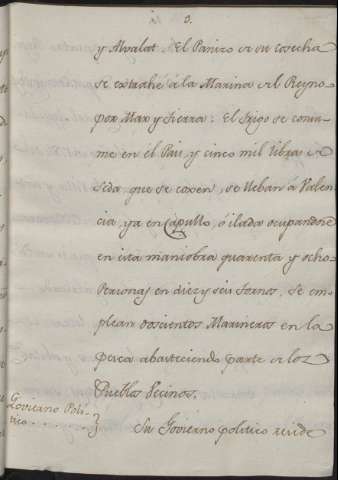 y Alvalat. El Panizo de su cosecha
se extrahe à la Marina del Reyno
por Mar y Tierra: El trigo se consu-
me en el Pais, y cinco mil libras de
Seda que se coxen, se lleban à Valen-
cia, ya en Capullo, ó ilada ocupandose
en esta maniobra quarenta y ocho
Personas en diez y seis tornos. Se em-
plean doscientos Marineros en la
pesca abasteciendo parte de los
Pueblos Vecinos.
Govierno Poli-
tico
Su Govierno politico reside